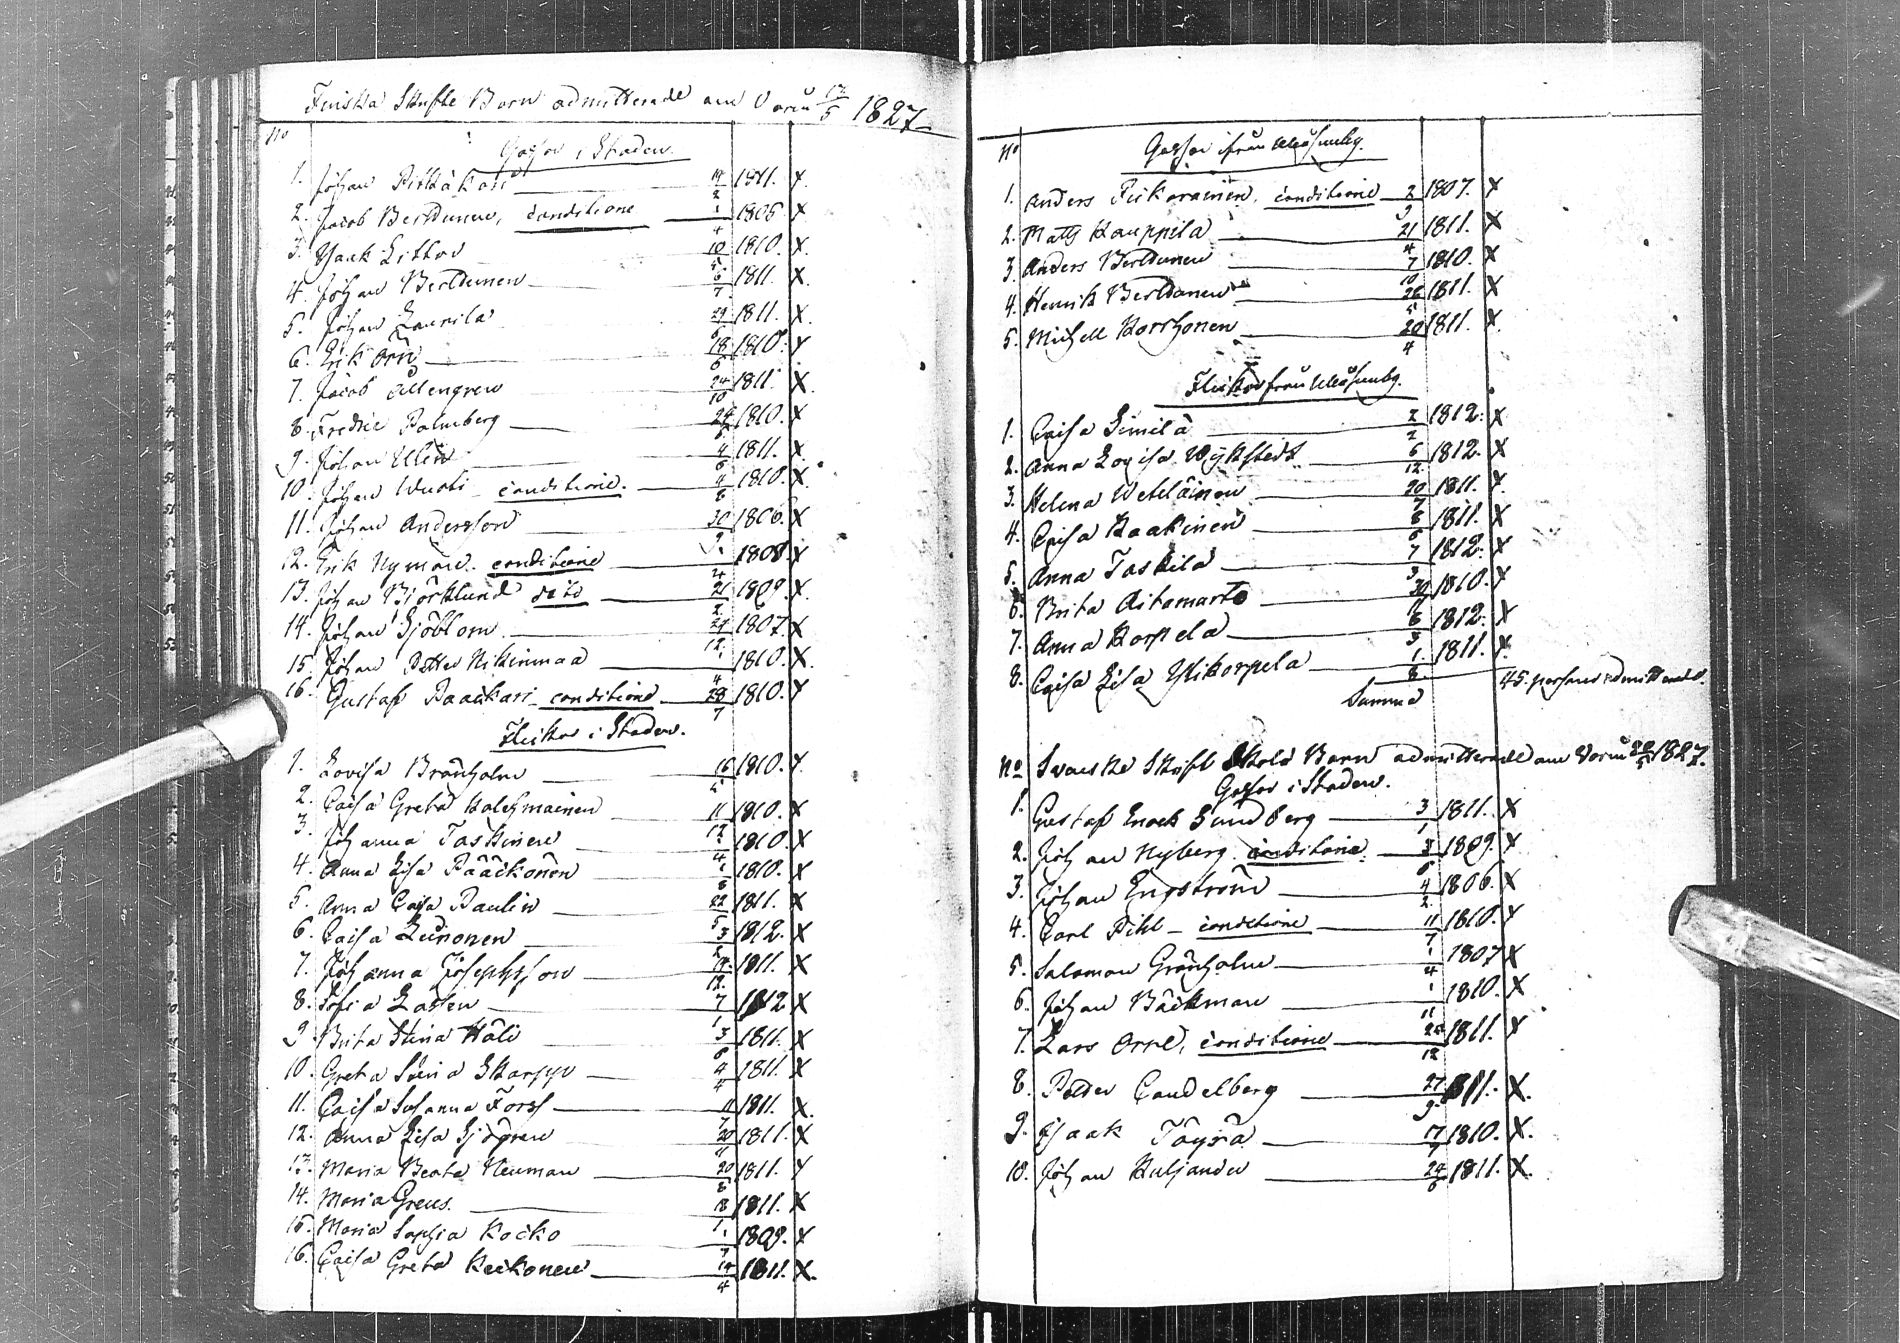 Finska Skrifte Barn admitterade ann Vårn 13/5 1827
No
Gossar i Staden.
1. Johan Pitkäkari 1811. X
2. Jacob Bertdunen, conditione 1/4 1805 X
3. Isaak 10/5 1810. X
4. Johan Bertdunen 6/7 1811. X
5. Johan Laurila 1811. X
6. Erik Orn 18/6 1810. X
7. Jacob Allengren 24/10 1811. X
8. Fredric Palmberg 1810. X
9. Johan Ulin 4/6 1811. X
10. Johan Wuoti conditione. 4/8 1810. X
11. Johan Andersson 30/9 1806. X
12. Erik Nyman. conditione 1808. X
13. Johan Björklund dito 21/2 1809. X
14. Johan Sjöblom 1807. X
15. Johan Petter Nikinmaa 1/4 1810. X
16. Gustaf Paackari conditione 28/7 1810. X
Flickor i Staden.
1. Lovisa Brånholm 16/5 1810. X
2. Caisa Greta Kolehmainen 11/12 1810. X
3. Johanna Taskinen 1/4 1810 X
4. Anna Lisa Pääckönen 1/8 1810. X
5. Anna Caisa Paulin 22/5 1811. X
6. Caisa Leinonen 1812. X
7. Johanna Josephsson 14/12 1811. X
8. Sofia Lassen 7/1 1812 X
9. Brita Stina Häli 3/8 1811. X
10. Greta Stina Skarpp 4/4 1811. X
11. Caisa Susanna Forss 11/7 1811. X
12. Anna Lisa Sjögren 20/11 1811. X
13. Maria Beata Neuman 20/8 1811. X
14. Maria Greus. 18/1 1811. X
15. Maria Sophia Kocko 1/7 1809. X
16. Caisa Greta Keckonen 14/4 1811. X
No
Gossar ifrån Uleåsumby.
1. Anders Pickarainen, conditione 2/9 1807. X
2. Matts Kauppila 21/4 1811. X
3 Anders Bertdunen 7/10 1810. X
4. Henrik Bertdunen 28/5 1811. X
5. Michell Korrhonen 20/4 1811. X
Flickor från Uleåsumby.
1. Caisa Simila 2/2 1812. X
2. Anna Lovisa Wijkstedt 6/12 1812. X
3. Helena Weteläinen 20/7 1811. X
4. Caisa Kaakinen 8/6 1811. X
5. Anna Taskila 7/9 1812. X
6. Brita Aitamarto 1810. X
7. Anna Korpela 6/9 1812. X
8. Caisa Lisa Ylikorpela 1/8 1811. X
Summa 45. persones admitterade.
No Svenske Skrift Skola Barn admitterade ann Vårn 20/5 1827.
Gossar i Staden.
1. Gustaf Enock Sundberg 3/1 1811. X
2. Johan Nyberg conditione 1809. X
3. Johan Engström 4/2 1806. X
4. Carl Pihl conditione 11/7 1810. X
5. Salomon Grönholm 1/4 1807 X
6. Johan Bäckman 1/11 1810. X
7. Lars Orre, conditione 25/12 1811. X
8. Petter Candelberg 27/9 1811. X.
9. Isaak Töyrä 17/7 1810. X.
10. Johan Kuljander 24/6 1811. X.